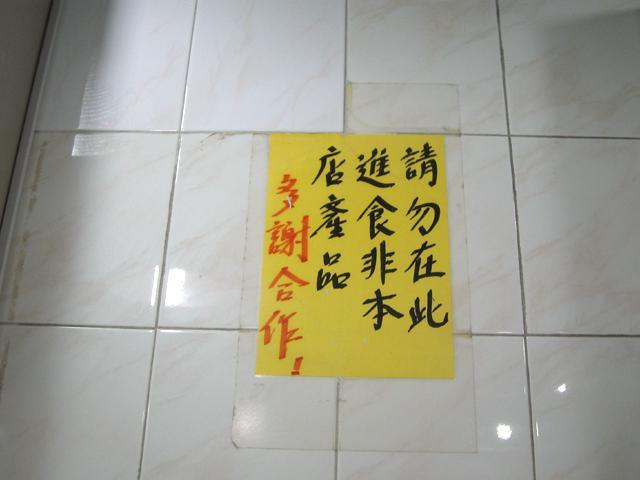 請勿在此
進食非本
店產品
多謝合作！